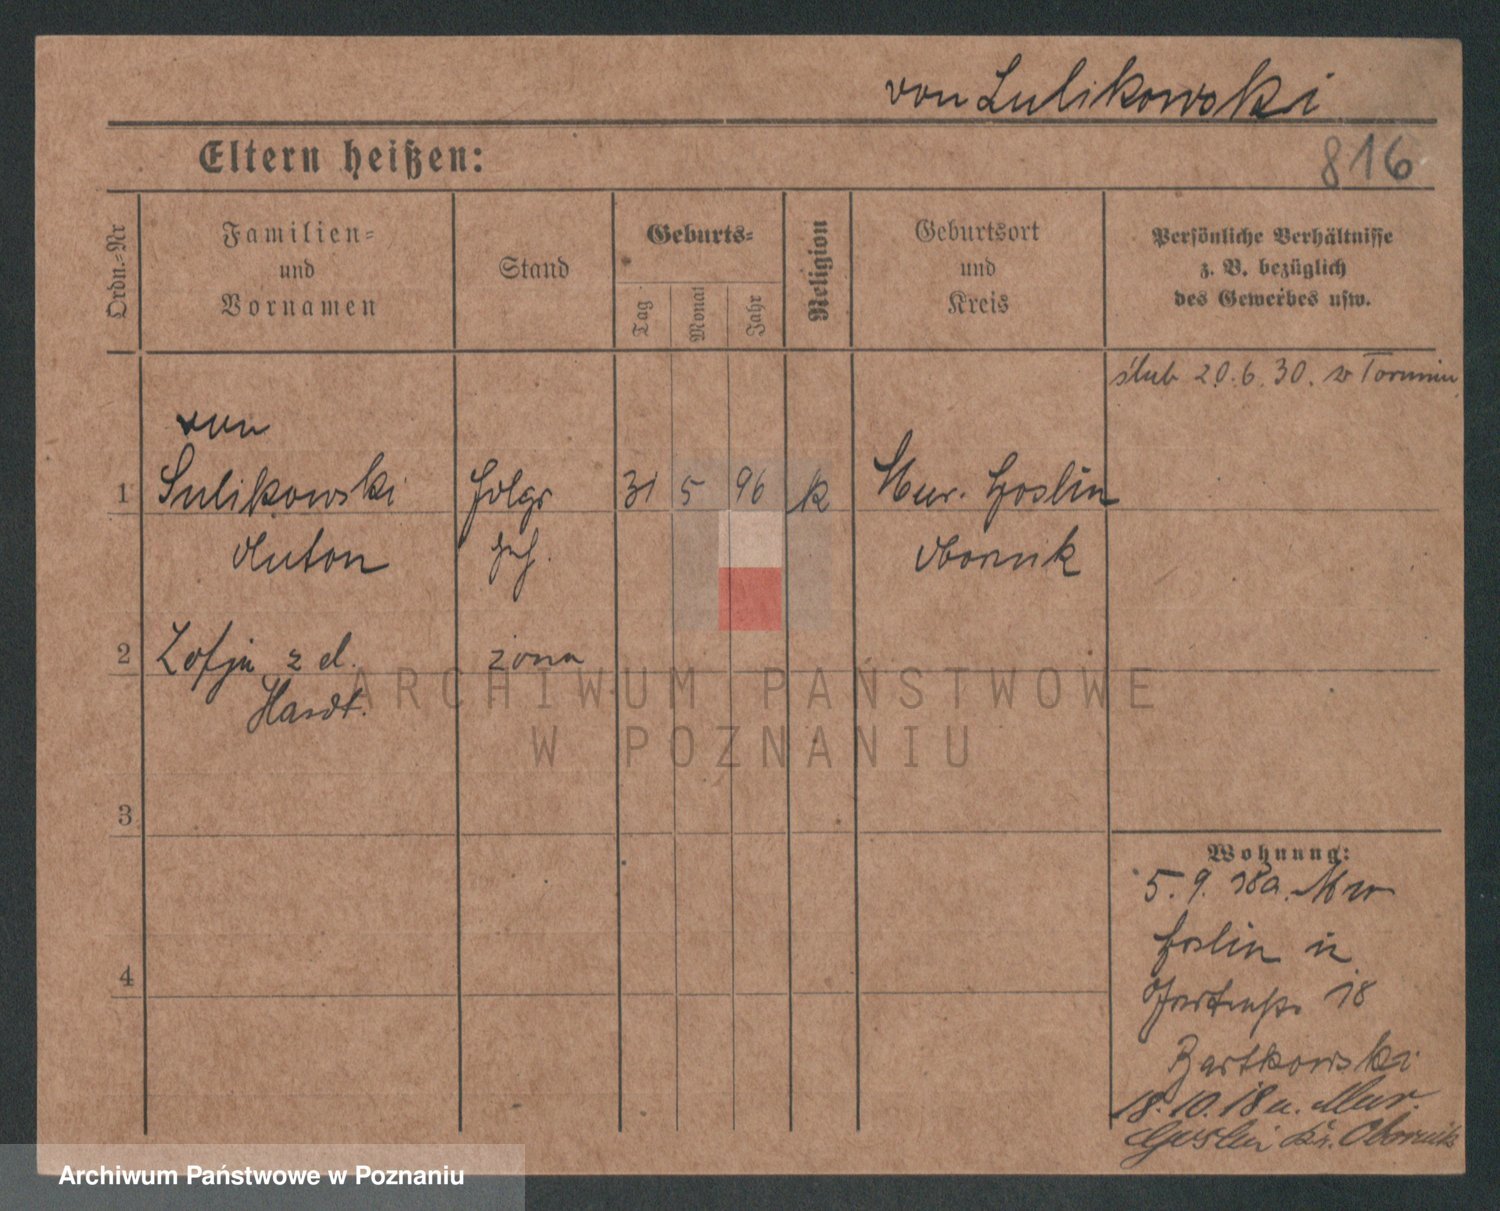 von Sulikowski
Eltern heißen:
816
Ordn.-Nr
Familien-
und
Vornamen
Stand
Geburts-
Tag
Monat
Jahr
Religion
Geburtsort
und
Kreis
Persönliche Verhältnisse
z. B. bezüglich
des Gewerbes usw.
ślub 20.6.30. w Toruniu
von
1 Sulikowski 31 5 96 k Mur. Goslin
Anton Obornik
2 Zofja z d. żona
Hardt.
3
4
Wohnung:
5. 9. 18 a. Mur
Goslin in
18
Bartkowski
18.10.18 n. Mur.
Goslin Kr. Obornik
ARCHIWUM PAŃSTWOWE
W POZNANIU
Archiwum Państwowe w Poznaniu